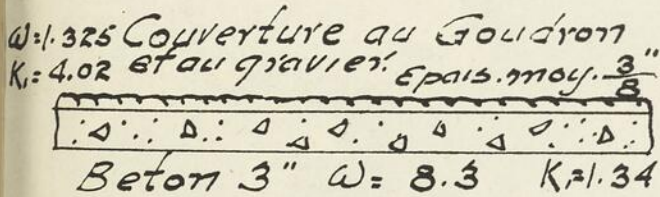 ω=1.325 Couverture au Goudron
K₁= 4.02 et au gravier. Epais. moy. 3/8"
Beton 3" ω= 8.3 K₁=1.34